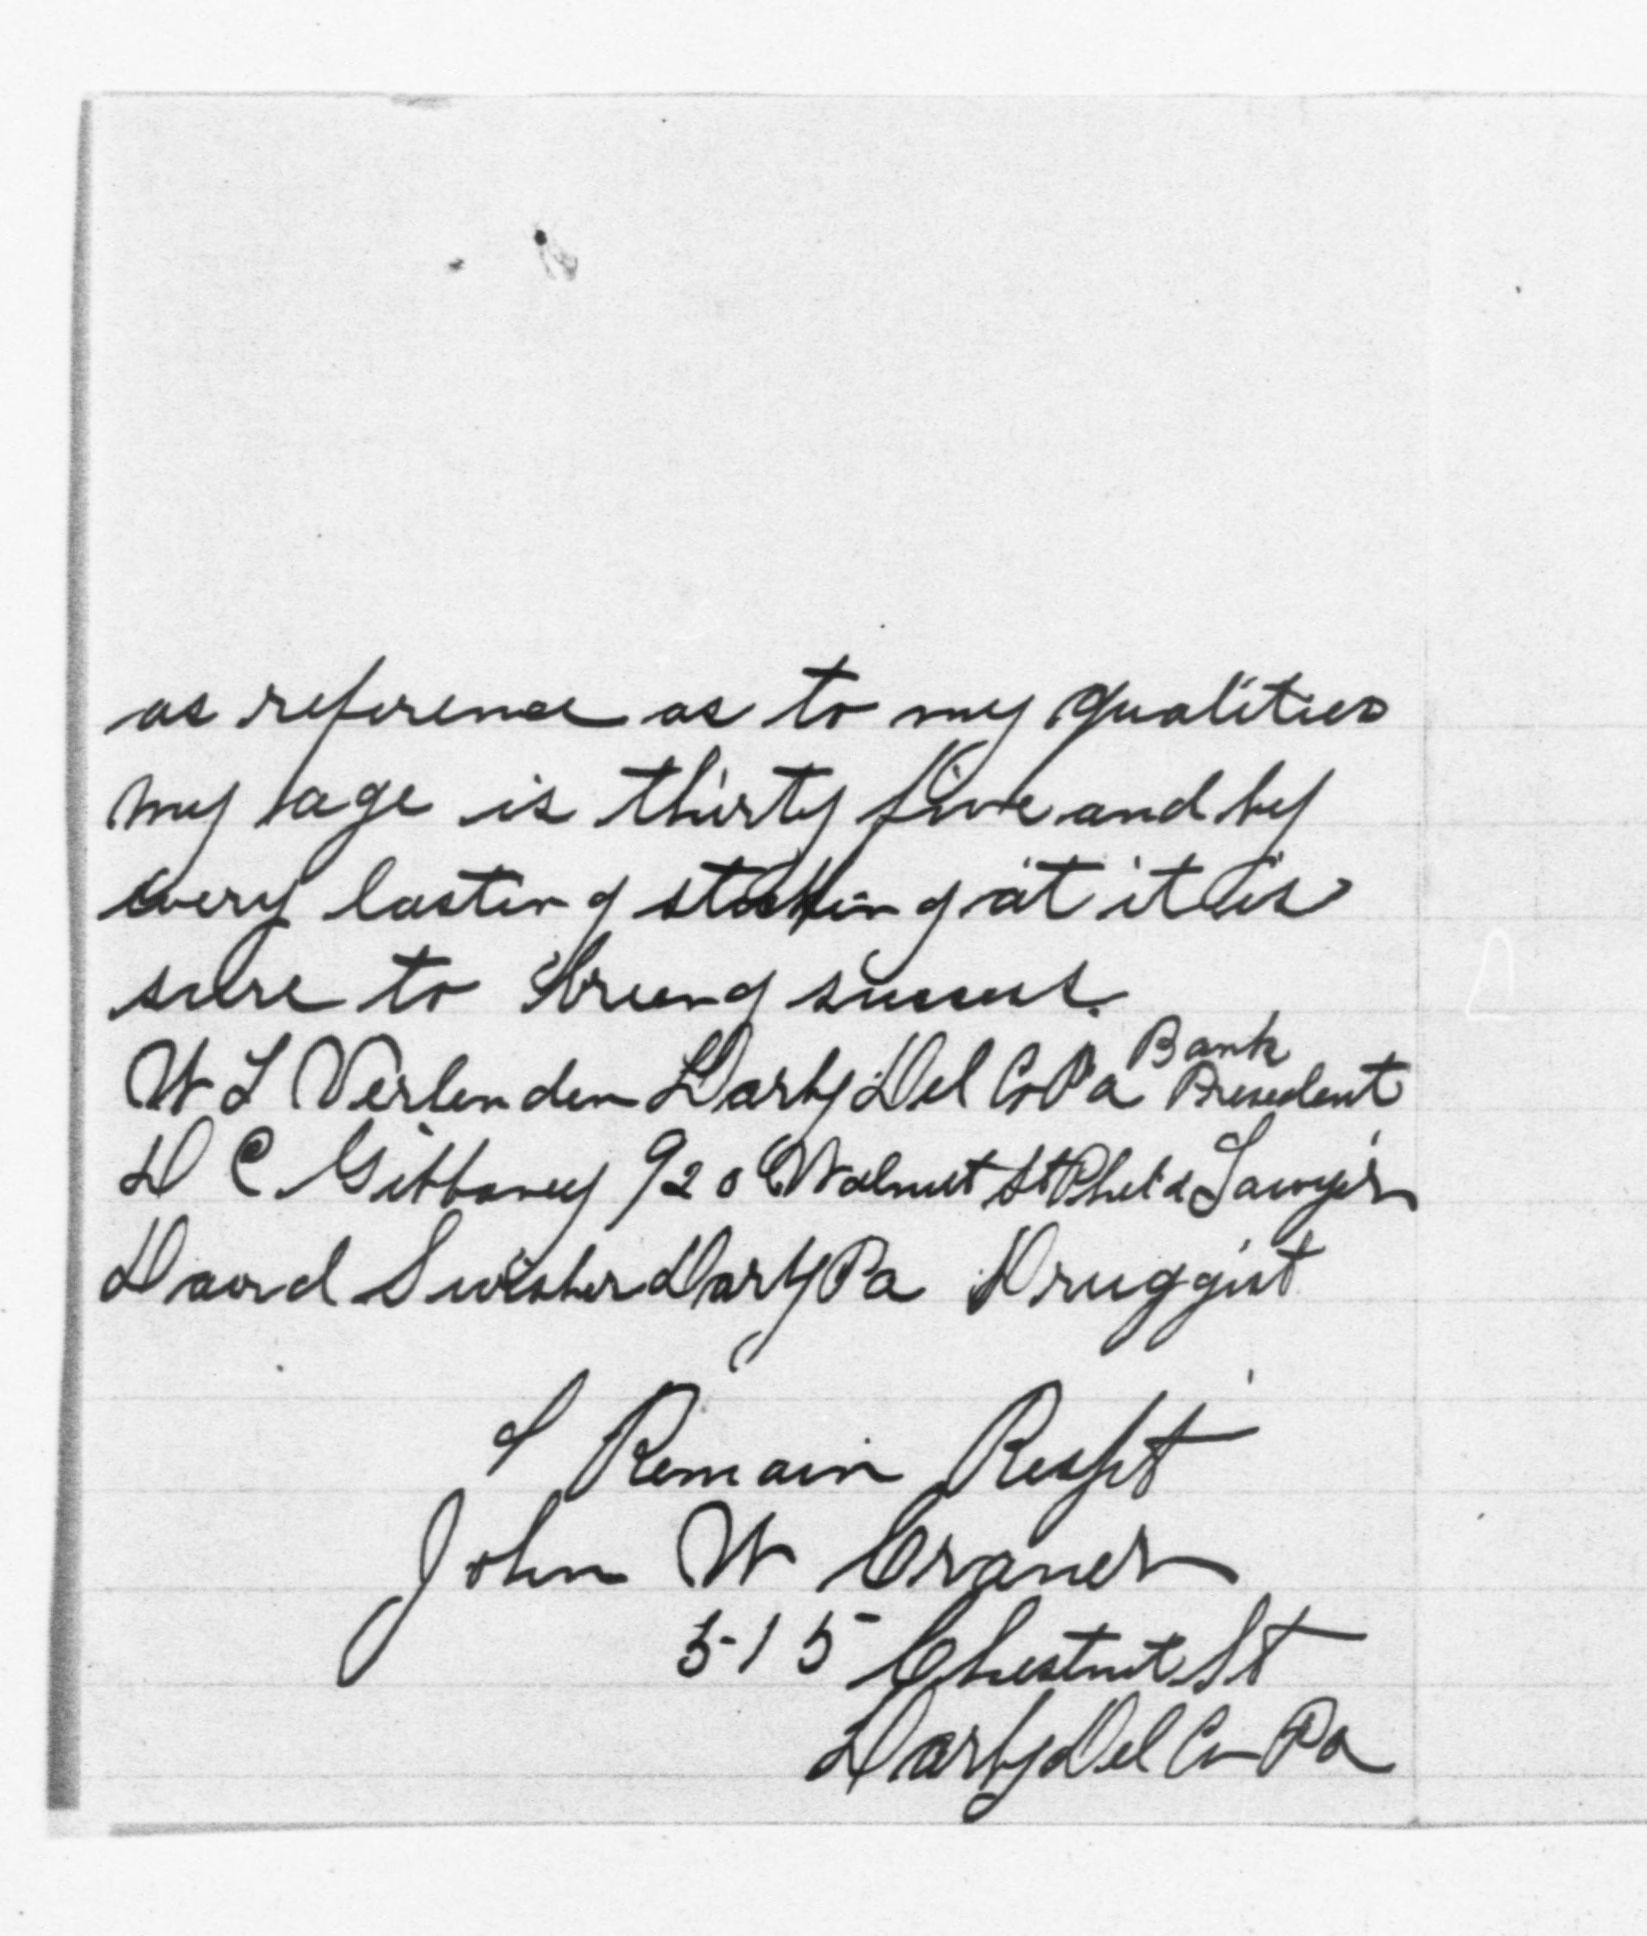 as reference as to my qualities
my age is thirty five and by
every lasting sticking at it is
sure to breeng success.
W L Verlenden Darby Del Co Pa Bank President
D C Gibboney 920 Walnut St Phela Lawyer
David Swisher Darby Pa Druggist
I Remain Respt
John W Craner
515 Chestnut St
Darby Del Co Pa